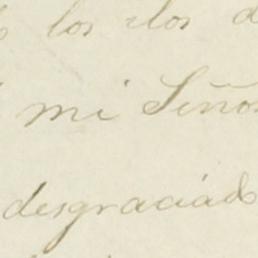 los dos
mi Señor
desgraciad